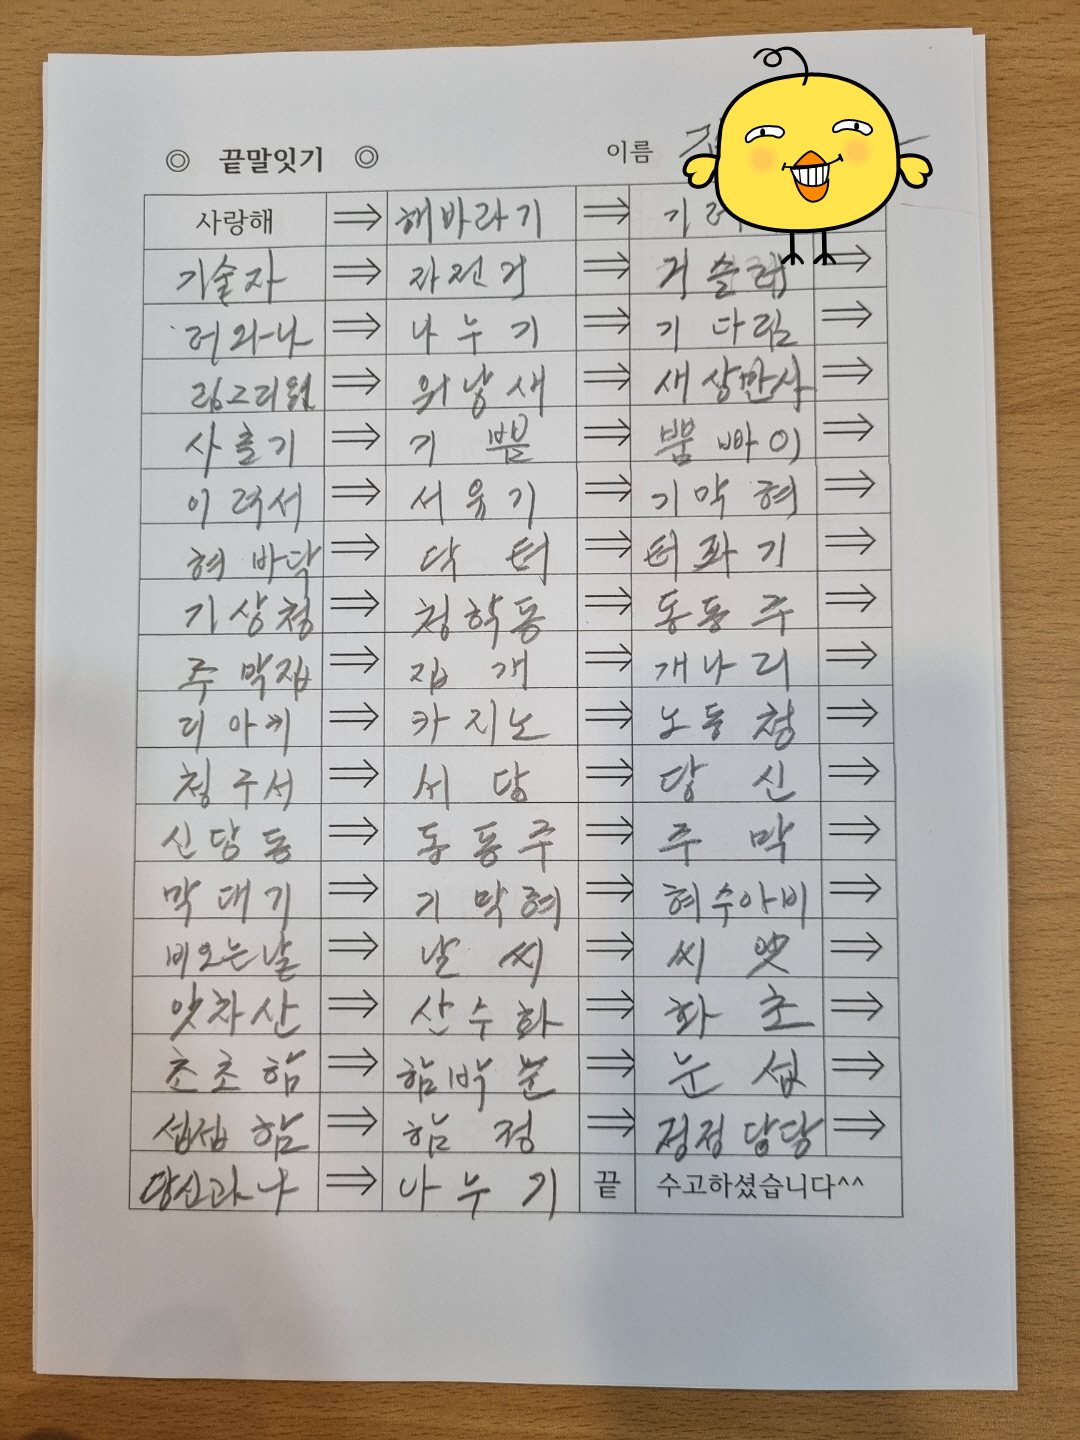 ◎ 끝말잇기 ◎ 이름
사랑해 ⇒ 해바라기 ⇒ 기러
기술자 ⇒ 자전거 ⇒ 거슬러 ⇒
러와나 ⇒ 나누기 ⇒ 기다림 ⇒
림그리워 ⇒ 워낭새 ⇒ 새상만사 ⇒
사흘기 ⇒ 기쁨 ⇒ 뿜빠이 ⇒
이력서 ⇒ 서유기 ⇒ 기막혀 ⇒
혀바닥 ⇒ 닥터 ⇒ 터파기 ⇒
기상청 ⇒ 청학동 ⇒ 동동주 ⇒
주막집 ⇒ 집개 ⇒ 개나리 ⇒
리아카 ⇒ 카지노 ⇒ 노동청 ⇒
청구서 ⇒ 서당 ⇒ 당신 ⇒
신당동 ⇒ 동동주 ⇒ 주막 ⇒
막대기 ⇒ 기막혀 ⇒ 허수아비 ⇒
비오는날 ⇒ 날씨 ⇒ 씨앗 ⇒
앗차산 ⇒ 산수화 ⇒ 화초 ⇒
초초함 ⇒ 함박눈 ⇒ 눈섭 ⇒
섭섭함 ⇒ 함정 ⇒ 정정당당 ⇒
당신과나 ⇒ 나누기 끝 수고하셨습니다^^